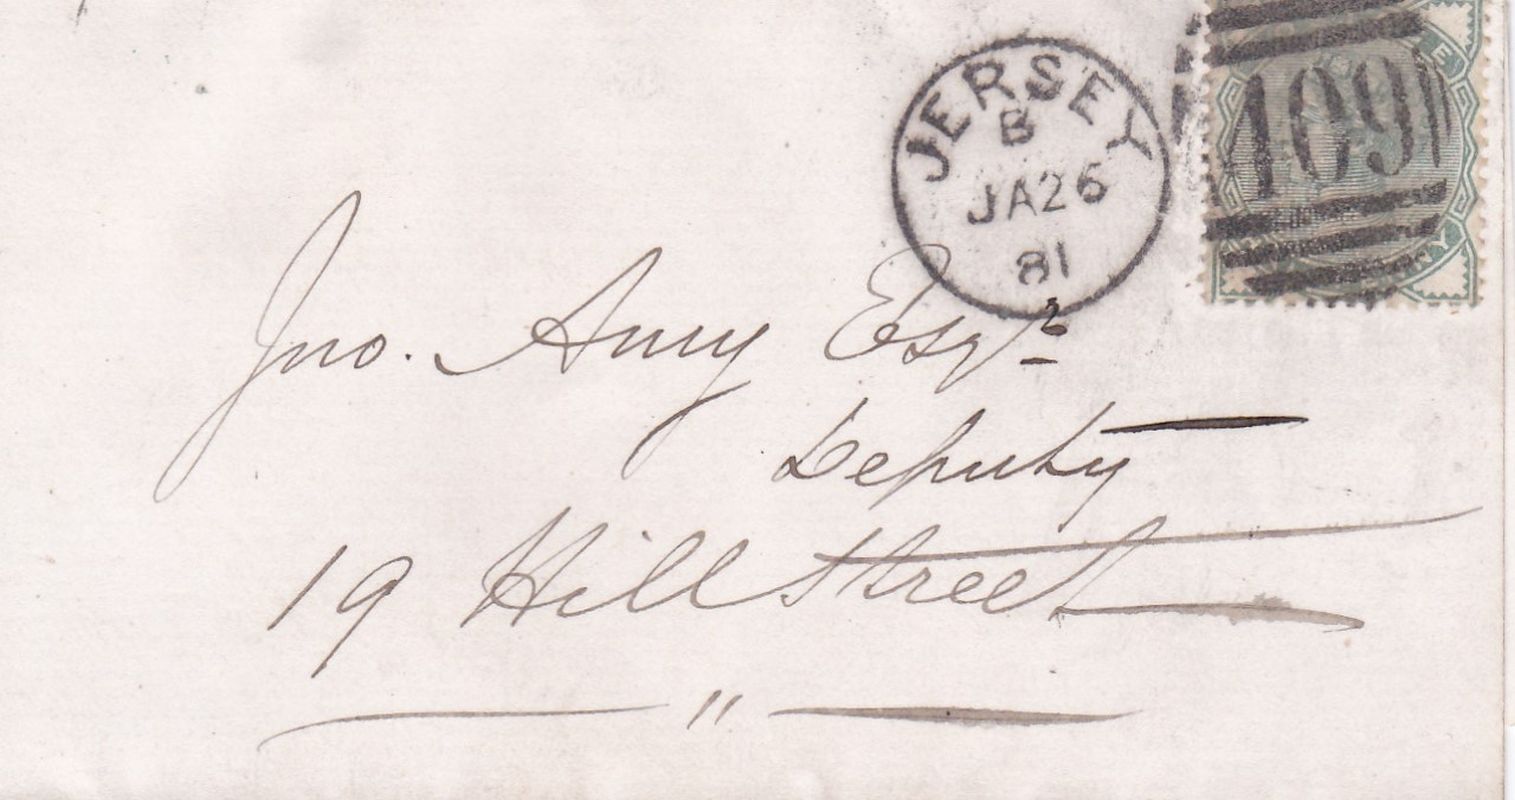 JERSEY
B
JA26
81
409
Jno. Amy Esqr
Deputy
19 Hill Street
"